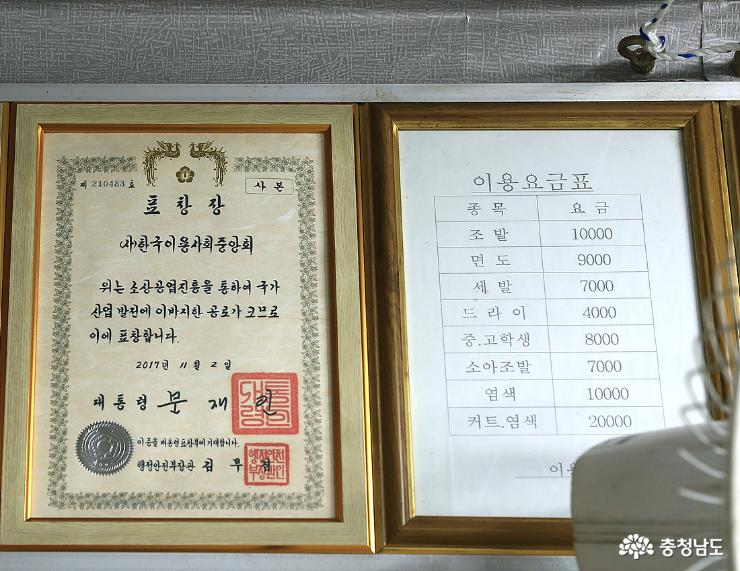 제 210483 호
사본
표창장
(사)한국이용사회중앙회
위는 소상공업진흥을 통하여 국가
산업 발전에 이바지한 공로가 크므로
이에 표창합니다.
2017년 11월 2일
대통령 문재인
이 증을 대통령 표창부에 기재합니다.
행정안전부장관 김부겸
이용요금표
종목 요금
조발 10000
면도 9000
세발 7000
드라이 4000
중.고학생 8000
소아조발 7000
염색 10000
커트.염색 20000
이용
충청남도